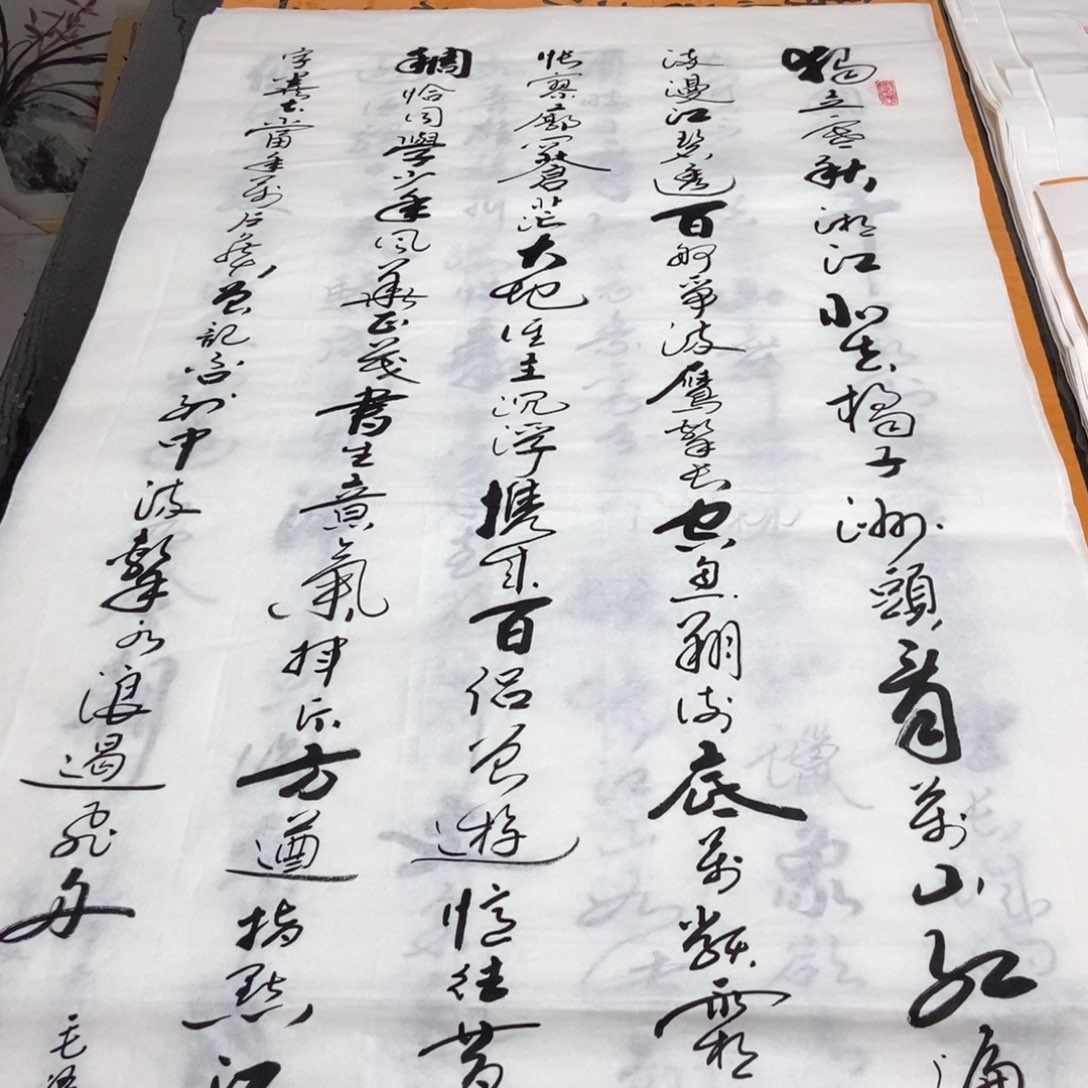 獨立寒秋湘江北去橘子洲頭看萬山紅遍
漫江碧透百舸爭流鷹擊長空魚翔淺底萬類霜
悵寥廓問蒼茫大地誰主沉浮攜來百侶曾遊憶往昔
稠恰同學少年風華正茂書生意氣揮斥方遒指點江
字糞土當年萬戶侯曾記否到中流擊水浪遏飛舟
毛澤